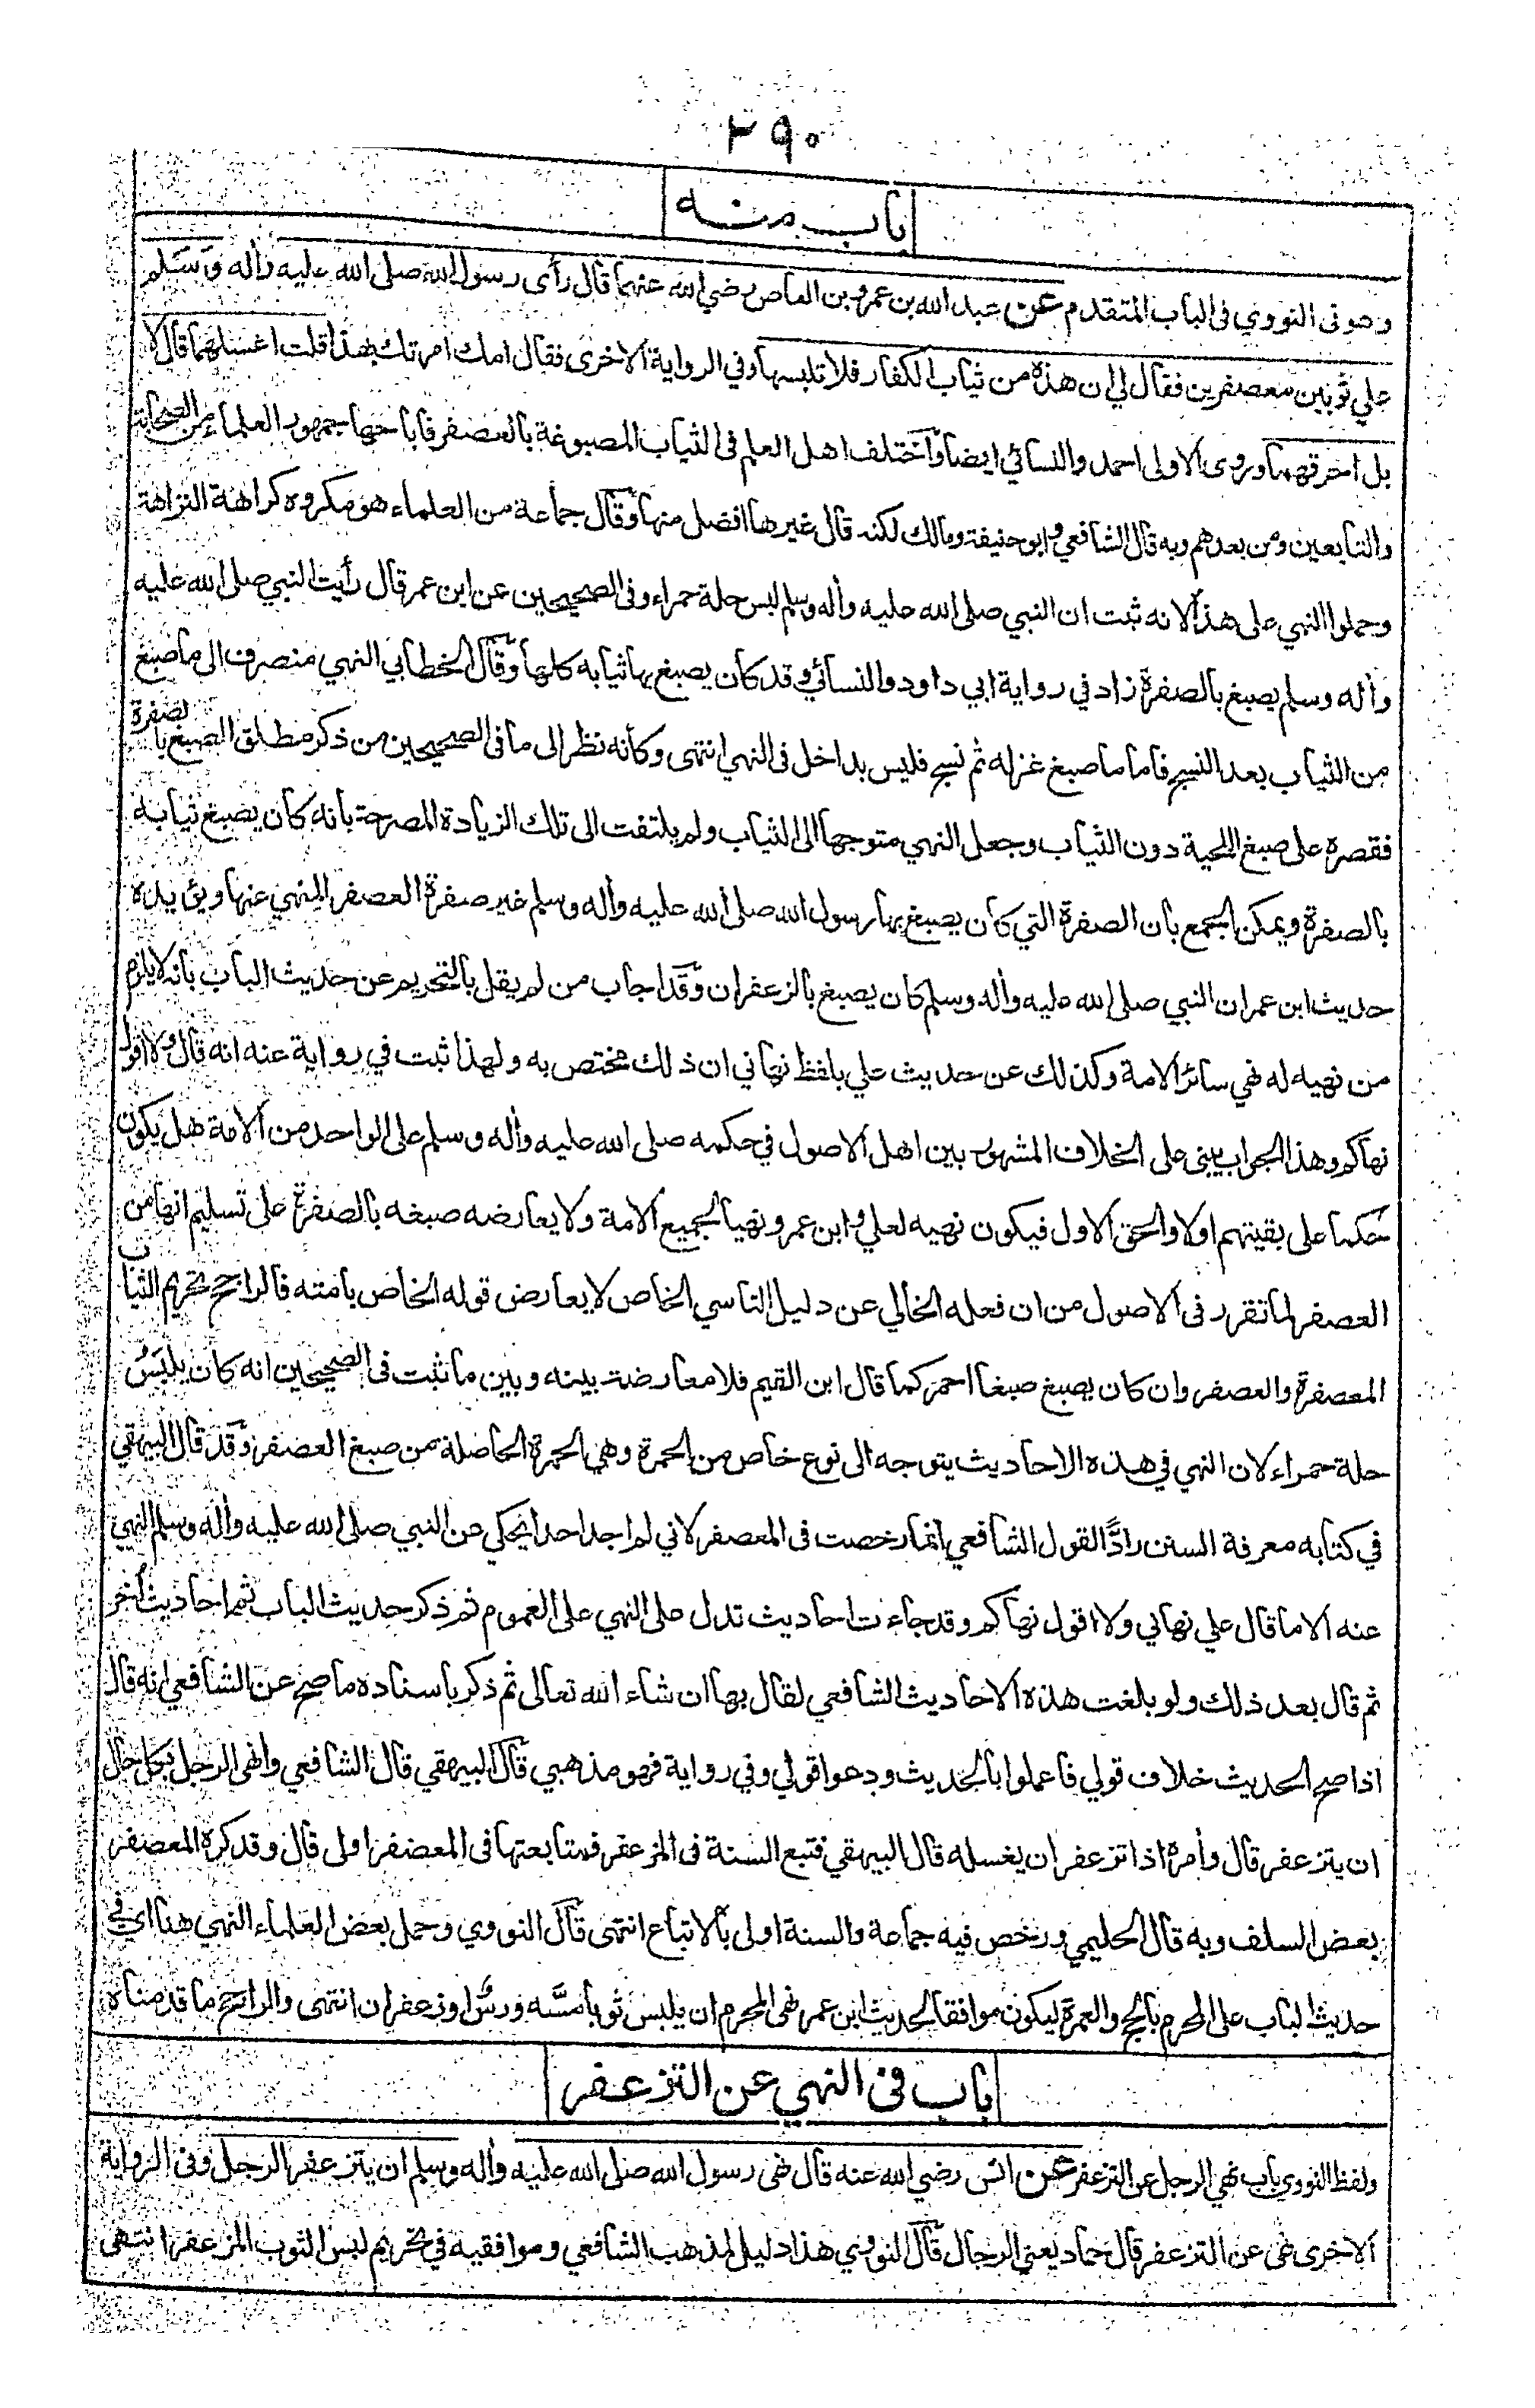 ٢٩٠
باب منه
وهو في النووي في الباب المتقدم عن عبد الله بن عمرو بن العاص رضي الله عنهما قال رأى رسول الله صلى الله عليه وأله وسلم
علي ثوبين معصفرين فقال لي ان هذه من ثياب الكفار فلا تلبسها وفي الرواية الاخرى فقال امك امرتك بهذا قلت اغسلهما قال لا
بل احرقهما وروى الاولى احمد والنسائي ايضا وأختلف اهل العلم في الثياب المصبوغة بالعصفر فاباحها جمهور العلماء من الصحابة
والتابعين ومن بعدهم وبه قال الشافعي وابو حنيفة ومالك لكنه قال غيرها افضل منها وقال جماعة من العلماء هو مكروه كراهة النزاهة
وحملوا النهي على هذا لانه ثبت ان النبي صلى الله عليه وأله وسلم لبس حلة حمراء وفي الصحيحين عن ابن عمر قال رأيت النبي صلى الله عليه
وأله وسلم يصبغ بالصفرة زاد في رواية ابي داود والنسائي وقد كان يصبغ بها ثيابه كلها وقال الخطابي النهي منصرف الى ما صبغ
من الثياب بعد النسج فاما ما صبغ غزله ثم نسج فليس بداخل في النهي انتهى وكأنه نظر الى ما في الصحيحين من ذكر مطلق الصبغ بالصفرة
فقصره على صبغ اللحية دون الثياب وجعل النهي متوجها الى الثياب ولم يلتفت الى تلك الزيادة المصرحة بانه كان يصبغ ثيابه
بالصفرة ويمكن الجمع بأن الصفرة التي كان يصبغ بها رسول الله صلى الله عليه وأله وسلم غير صفرة العصفر المنهي عنها ويؤيده
حديث ابن عمر ان النبي صلى الله عليه وأله وسلم كان يصبغ بالزعفران وقد اجاب من لم يقل بالتحريم عن حديث الباب بانه لا يلزم
من نهيه له نهي سائر الامة وكذلك عن حديث علي بلفظ نهاني ان ذلك مختص به ولهذا ثبت في رواية عنه انه قال ولا اقول
نهاكم وهذا الجواب يبنى على الخلاف المشهور بين اهل الاصول في حكمه صلى الله عليه وأله وسلم على الواحد من الامة هل يكون
حكما على بقيتهم اولا والحق الاول فيكون نهيه لعلي وابن عمرو نهيا لجميع الامة ولا يعارضه صبغه بالصفرة على تسليم انها من
العصفر لما تقرر في الاصول من ان فعله الخالي عن دليل التاسي الخاص لا يعارض قوله الخاص بامته فالراجح تحريم الثياب
المعصفرة والعصفر وان كان يصبغ صبغا احمر كما قال ابن القيم فلا معارضة بينه وبين ما ثبت في الصحيحين انه كان يلبس
حلة حمراء لان النهي في هذه الاحاديث يتوجه الى نوع خاص من الحمرة وهي الحمرة الحاصلة من صبغ العصفر وقد قال البيهقي
في كتابه معرفة السنن رادًّا لقول الشافعي انما رخصت في المعصفر لاني لم اجد احدا يحكي عن النبي صلى الله عليه وأله وسلم النهي
عنه الا ما قال علي نهاني ولا اقول نهاكم وقد جاءت احاديث تدل على النهي على العموم ثم ذكر حديث الباب ثم احاديث أخر
ثم قال بعد ذلك ولو بلغت هذه الاحاديث الشافعي لقال بها ان شاء الله تعالى ثم ذكر باسناده ما صح عن الشافعي انه قال
اذا صح الحديث خلاف قولي فاعملوا بالحديث ودعوا قولي وفي رواية فهو مذهبي قال البيهقي قال الشافعي وانهى الرجل بكل حال
ان يتزعفر قال وأمره اذا تزعفر ان يغسله قال البيهقي فتبع السنة في المزعفر فمتابعتها في المعصفر اولى قال وقد كره المعصفر
بعض السلف وبه قال الحليمي ورخص فيه جماعة والسنة اولى بالاتباع انتهى قال النووي وحمل بعض العلماء النهي هنا اي في
حديث الباب على المحرم بالحج والعمرة ليكون موافقا لحديث ابن عمر نهي المحرم ان يلبس ثوبا مسَّه ورسٌ او زعفران انتهى والراجح ما قدمناه
باب في النهي عن التزعفر
ولفظ النووي باب نهي الرجل عن التزعفر عن انس رضي الله عنه قال نهى رسول الله صلى الله عليه وأله وسلم ان يتزعفر الرجل وفي الرواية
الاخرى نهى عن التزعفر قال حماد يعني الرجال قال النووي هذا دليل لمذهب الشافعي وموافقيه في تحريم لبس الثوب المزعفر انتهى